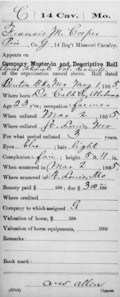 C 14 Cav. Mo.
Francis M. Cooper
Co. G, 14 Reg't Missouri Cavalry.
Company Muster-in and Descriptive Roll
of the organization named above. Roll dated
Benton Bks Mo May 1, 1865
Where born De Calb Co. Alabama
Age 23 y'rs; occupation farmer
When enlisted Mar 2, 1865
Where enlisted St. Louis Mo
For what period enlisted 3 years.
Eyes blue; hair light
Complexion fair; height 5 ft. in.
When mustered in Mar 2, 1865
Where mustered in St. Louis Mo
Bounty paid $ 100; due $ 300 100
Where credited
Company to which assigned G
Valuation of horse, $ 100
Valuation of horse equipments, $ 100
Remarks:
Book mark: